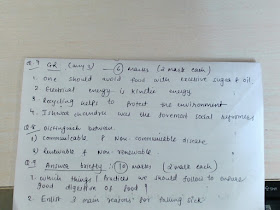 Q.7 GR (any 3) — 6 marks (2 mark each)
1. One should avoid food with excessive sugar & oil
2. Electrical energy is kinetic energy
3. Recycling helps to protect the environment
4. Ishwar was the foremost social
Q.8 Distinguish between
1) communicable & Non communicable disease
2) Renewable & Non renewable
Q.9 Answer briefly marks (2 mark each)
1. which things / Practices we should follow to ensure
good digestion of food?
2. Enlist 3 main reasons for falling sick